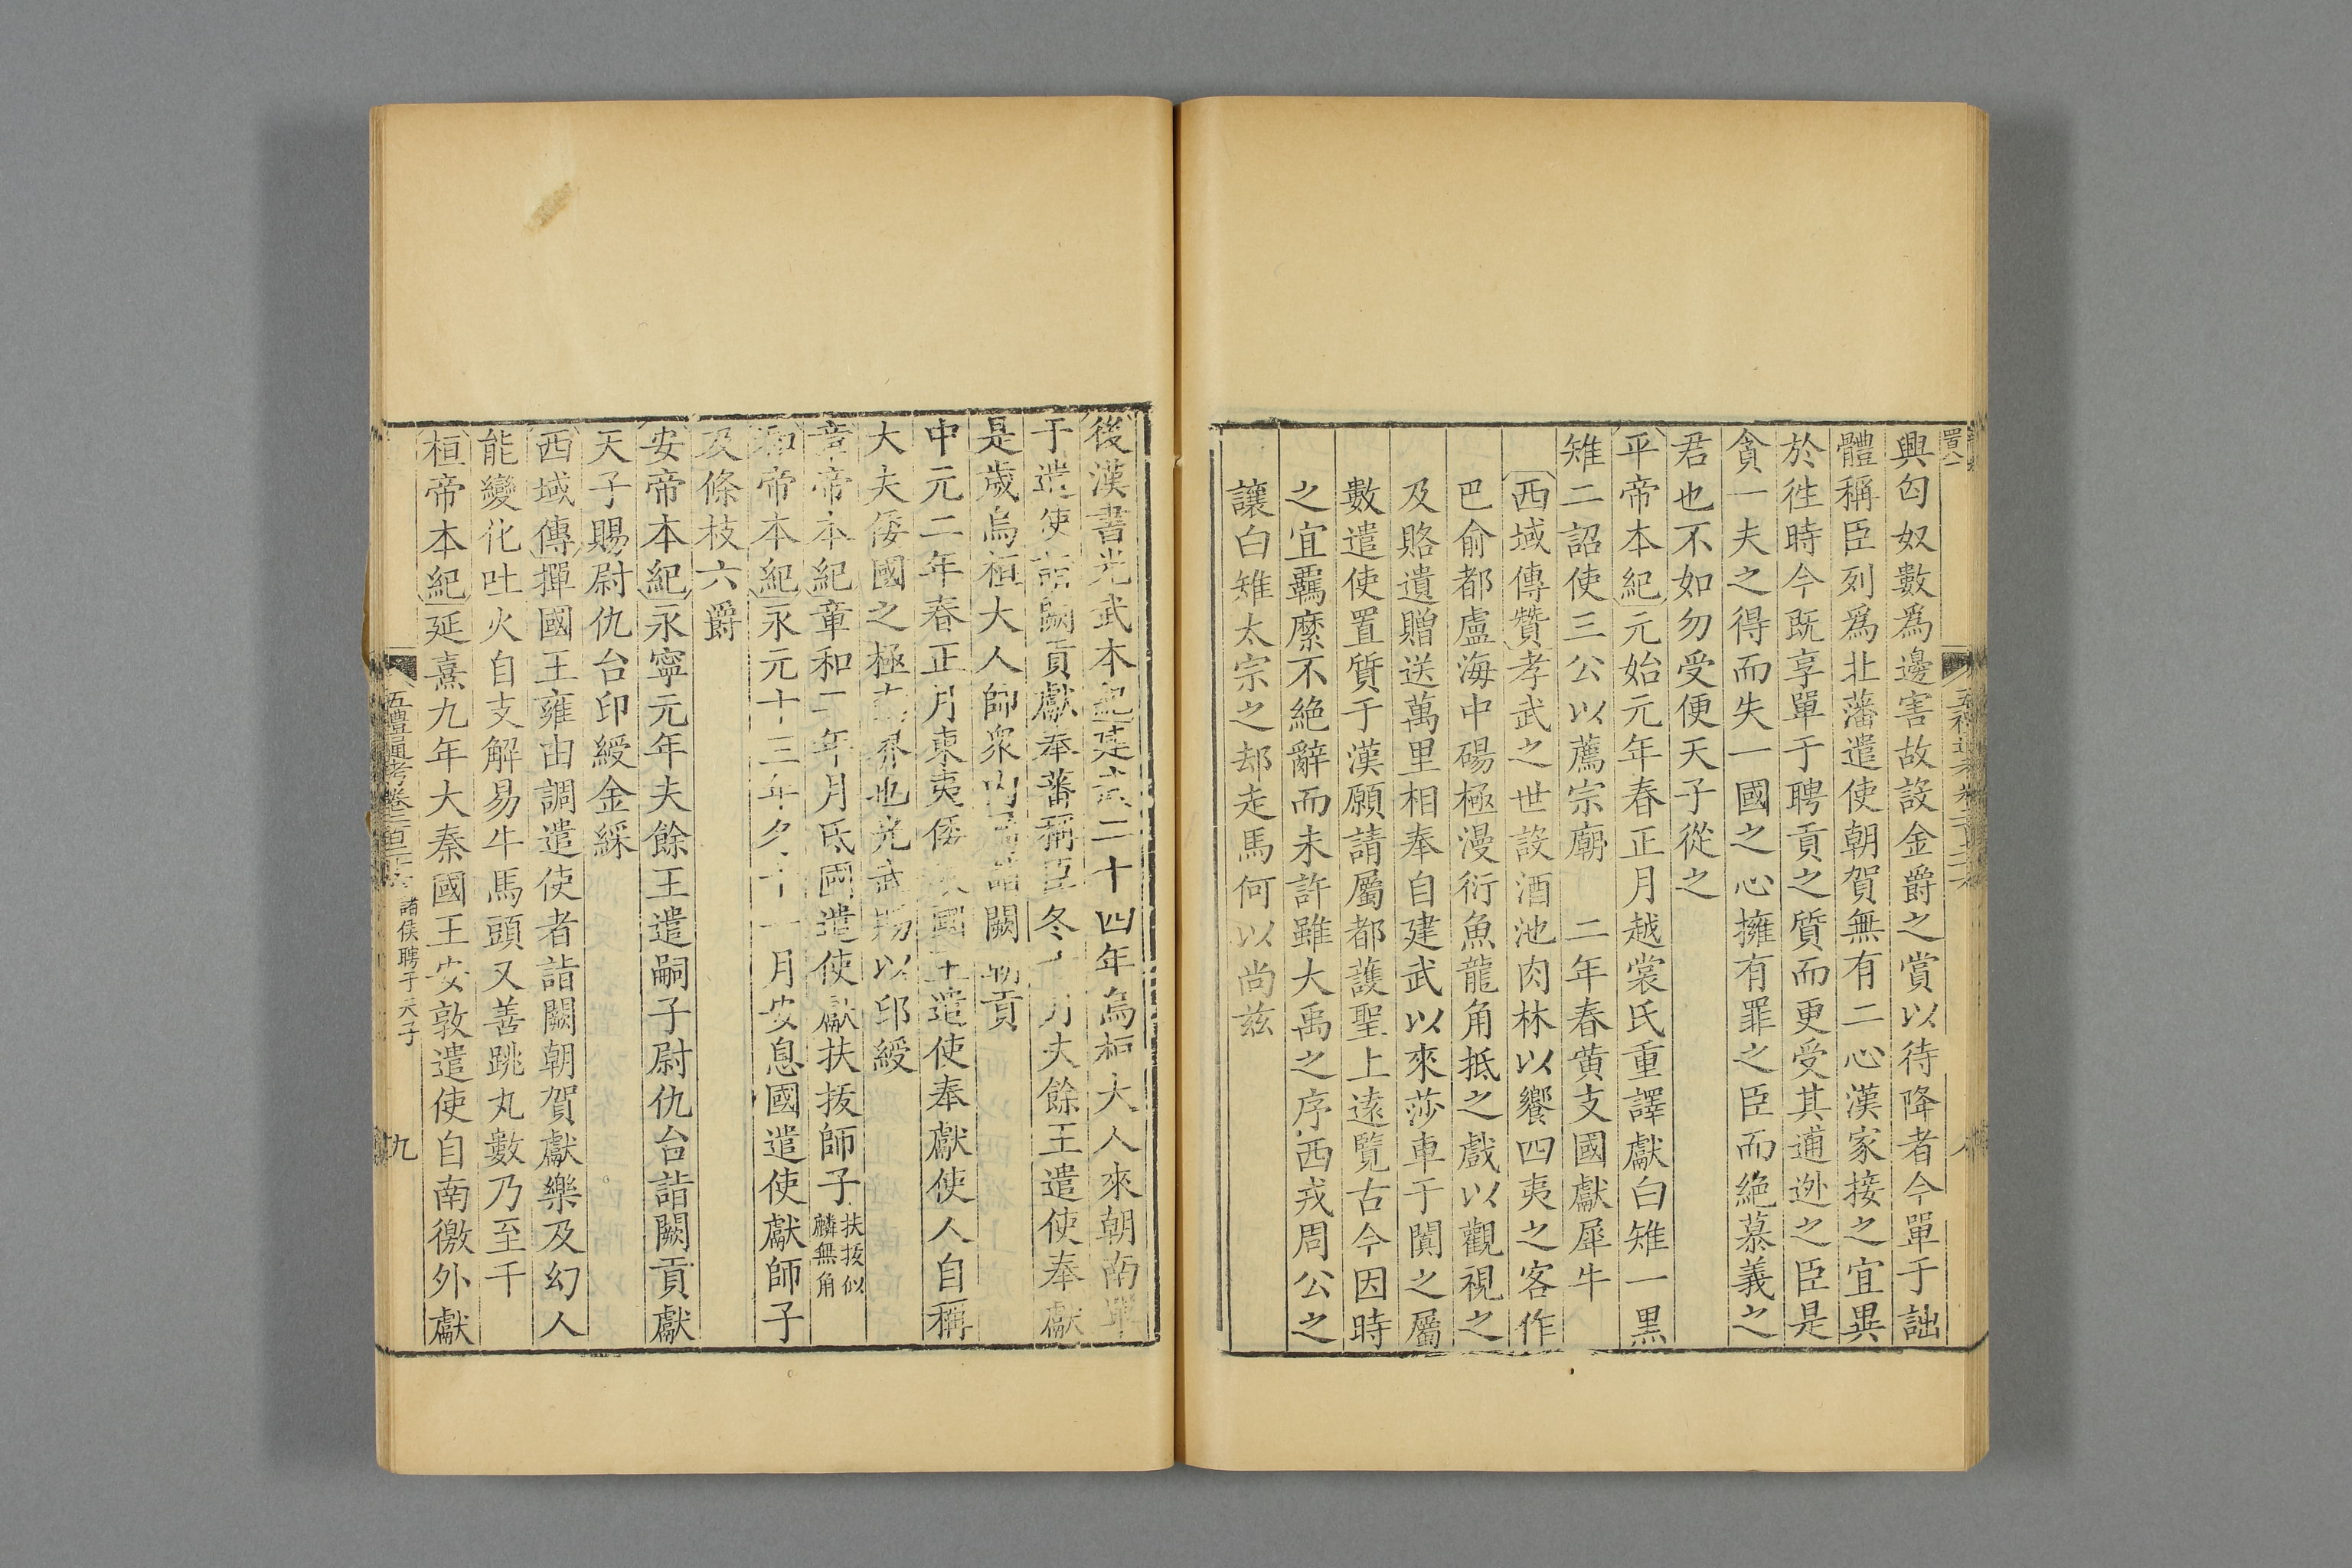 興匈奴數爲邊害故設金爵之賞以待降者今單于詘
體稱臣列爲北藩遣使朝賀無有二心漢家接之宜異
於徃時今既享單于聘貢之質而更受其逋逃之臣是
貪一夫之得而失一國之心擁有罪之臣而絶慕義之
君也不如勿受便天子從之
平帝本紀元始元年春正月越裳氏重譯獻白雉一黑
雉二詔使三公以薦宗廟　二年春黄支國獻犀牛
西域傳贊孝武之世設酒池肉林以饗四夷之客作
巴俞都盧海中碭極漫衍魚龍角抵之戲以觀視之
及賂遺贈送萬里相奉自建武以來莎車于闐之屬
數遣使置質于漢願請屬都護聖上遠覽古今因時
之宜羈縻不絶辭而未許雖大禹之序西戎周公之
讓白雉太宗之却走馬何以尚兹
後漢書光武本紀建武二十四年烏桓大人來朝南單
于遣使詣闕貢獻奉蕃稱臣冬十月夫餘王遣使奉獻
是歲烏桓大人師衆内屬詣闕朝貢
中元二年春正月東夷倭奴國王遣使奉獻使人自稱
大夫倭國之極南界也光武賜以印綬
章帝本紀章和二年月氐國遣使獻扶拔師子扶拔似麟無角
和帝本紀永元十三年冬十一月安息國遣使獻師子
及條枝六爵
安帝本紀永寧元年夫餘王遣嗣子尉仇台詣闕貢獻
天子賜尉仇台印綬金綵
西域傳撣國王雍由調遣使者詣闕朝賀獻樂及幻人
能變化吐火自支解易牛馬頭又善跳丸數乃至千
桓帝本紀延熹九年大秦國王安敦遣使自南徼外獻
五禮通考卷二百二十六　諸侯聘于天子　九